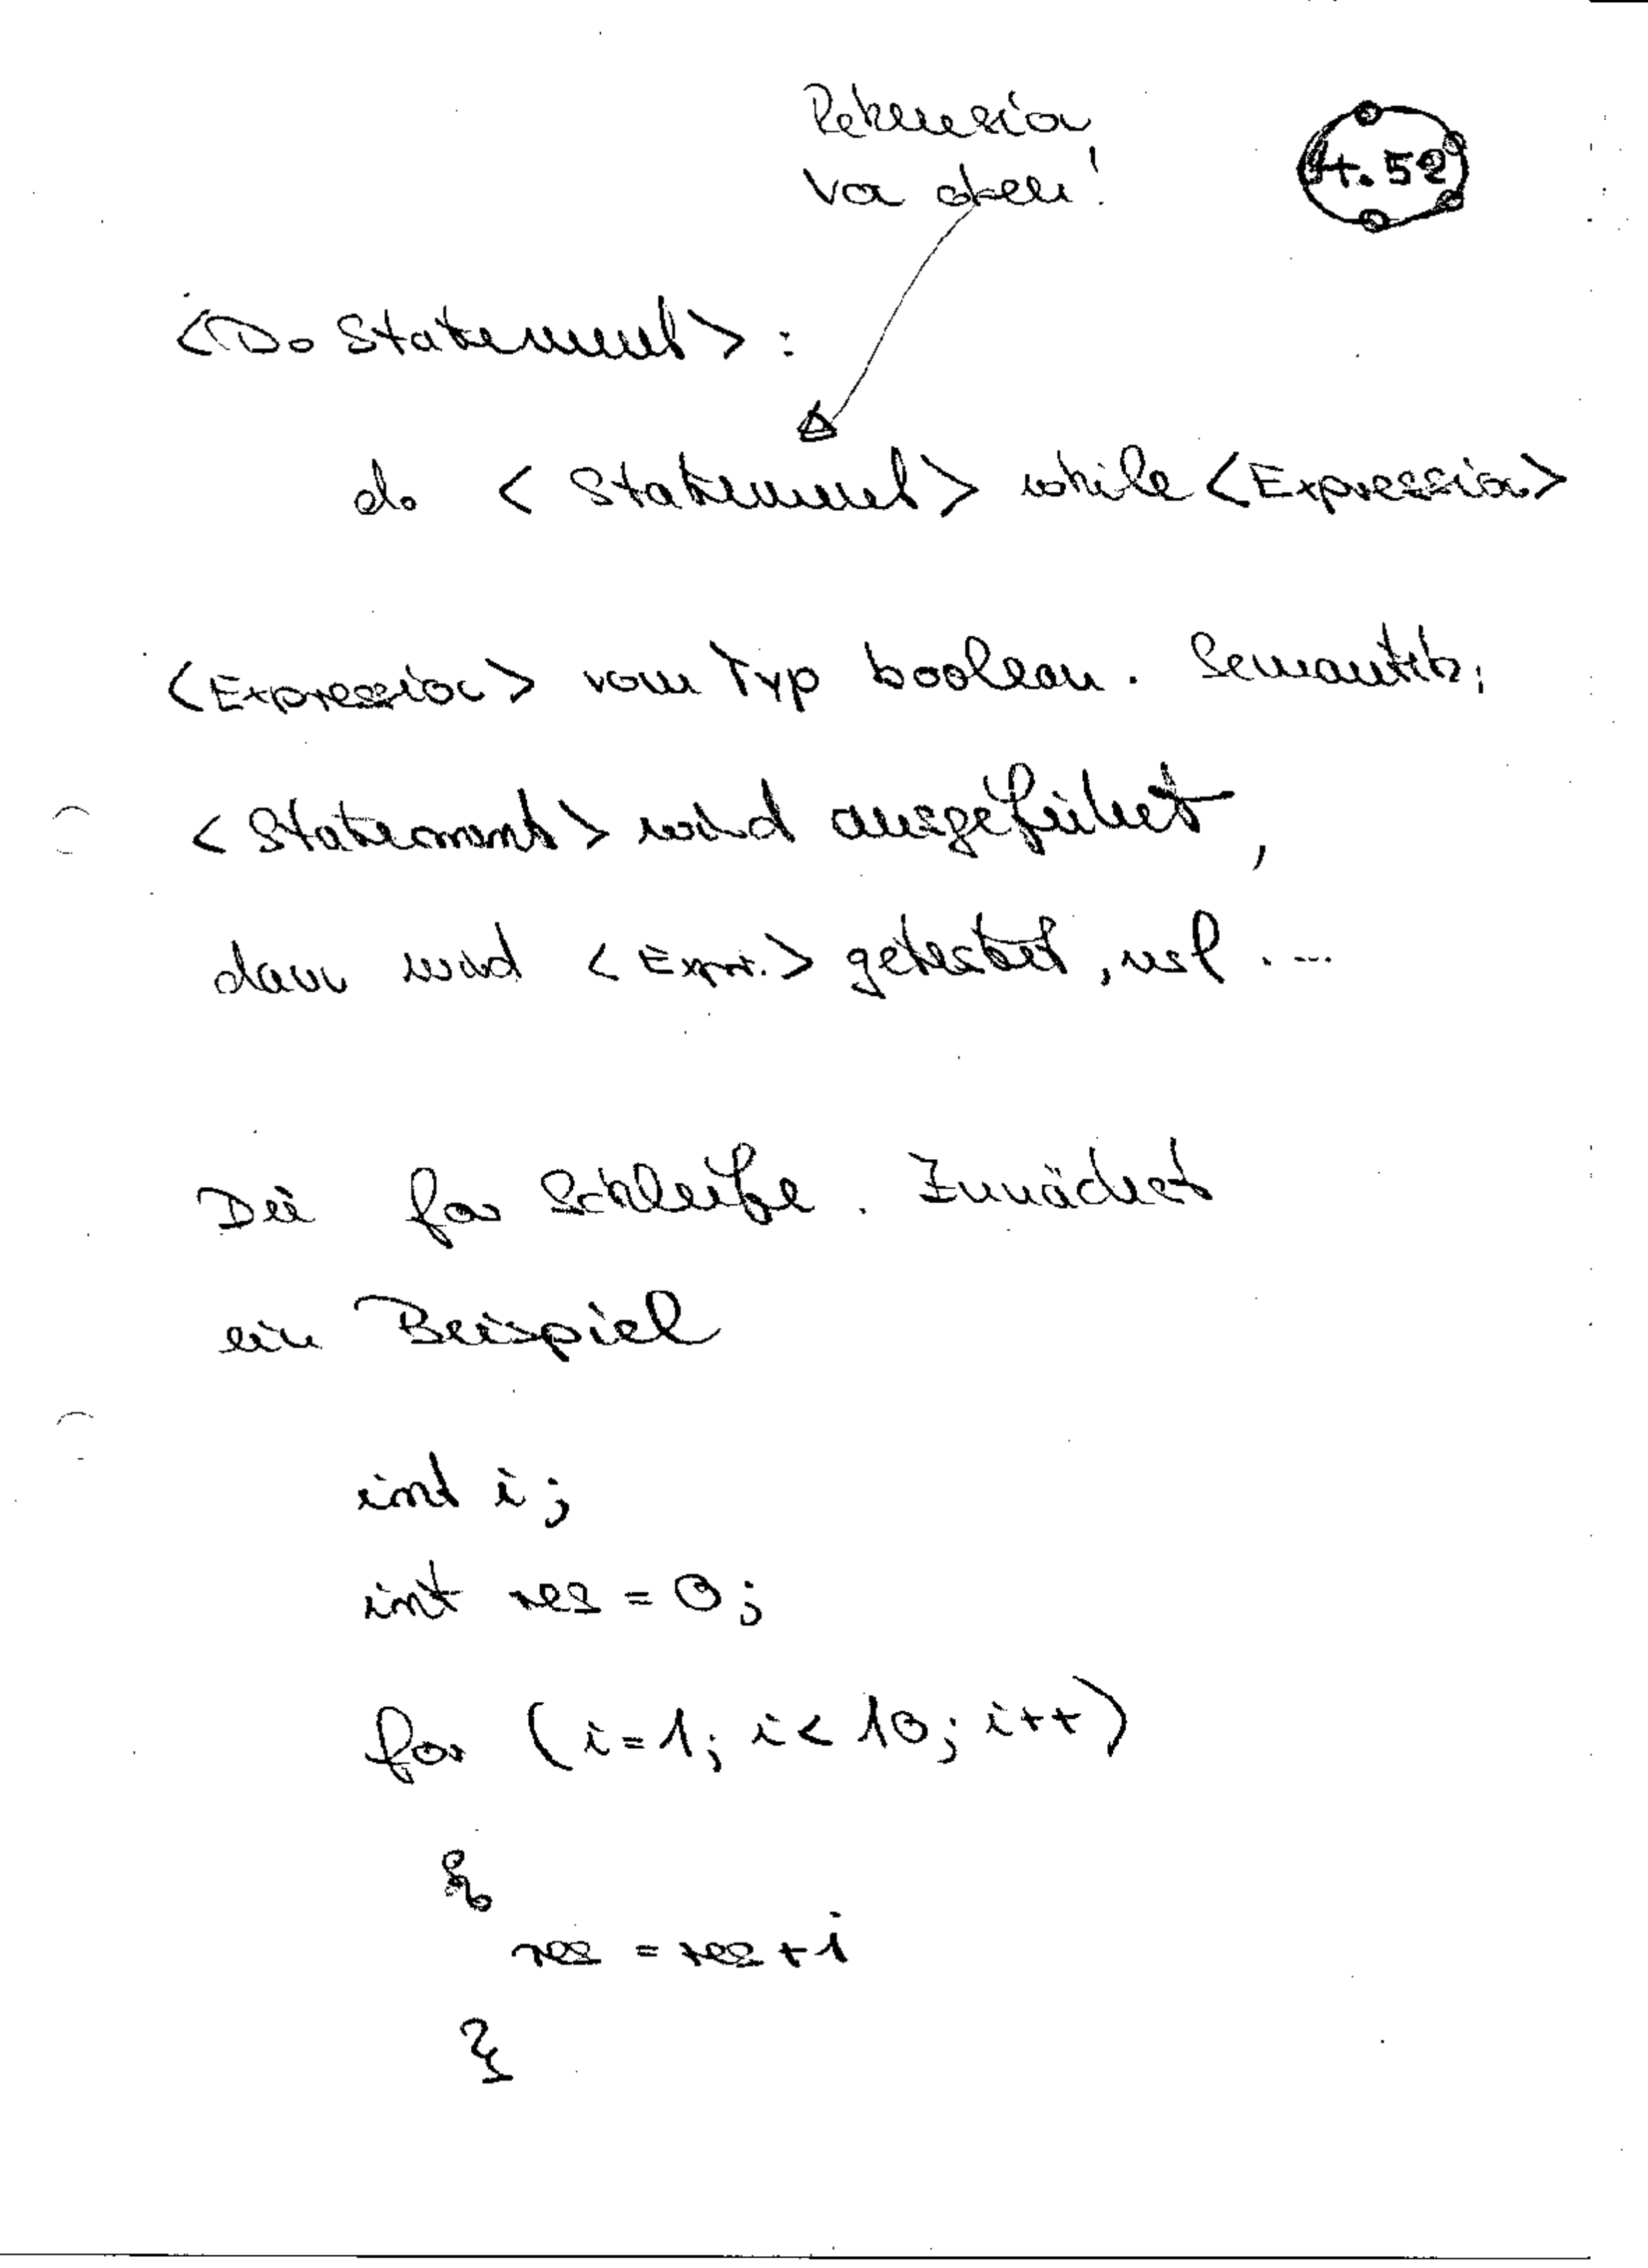 Rekursion
von oben!
4.52
<Do Statement> :
do <Statement> while <Expression>
<Expression> vom Typ boolean. Semantik:
<Statement> wird ausgeführt,
dann wird <Expr.> getestet, usf. ...
Die for Schleife. Zunächst
ein Beispiel
int i;
int res = 0;
for (i=1; i< 10; i++)
{
res = res + i
}